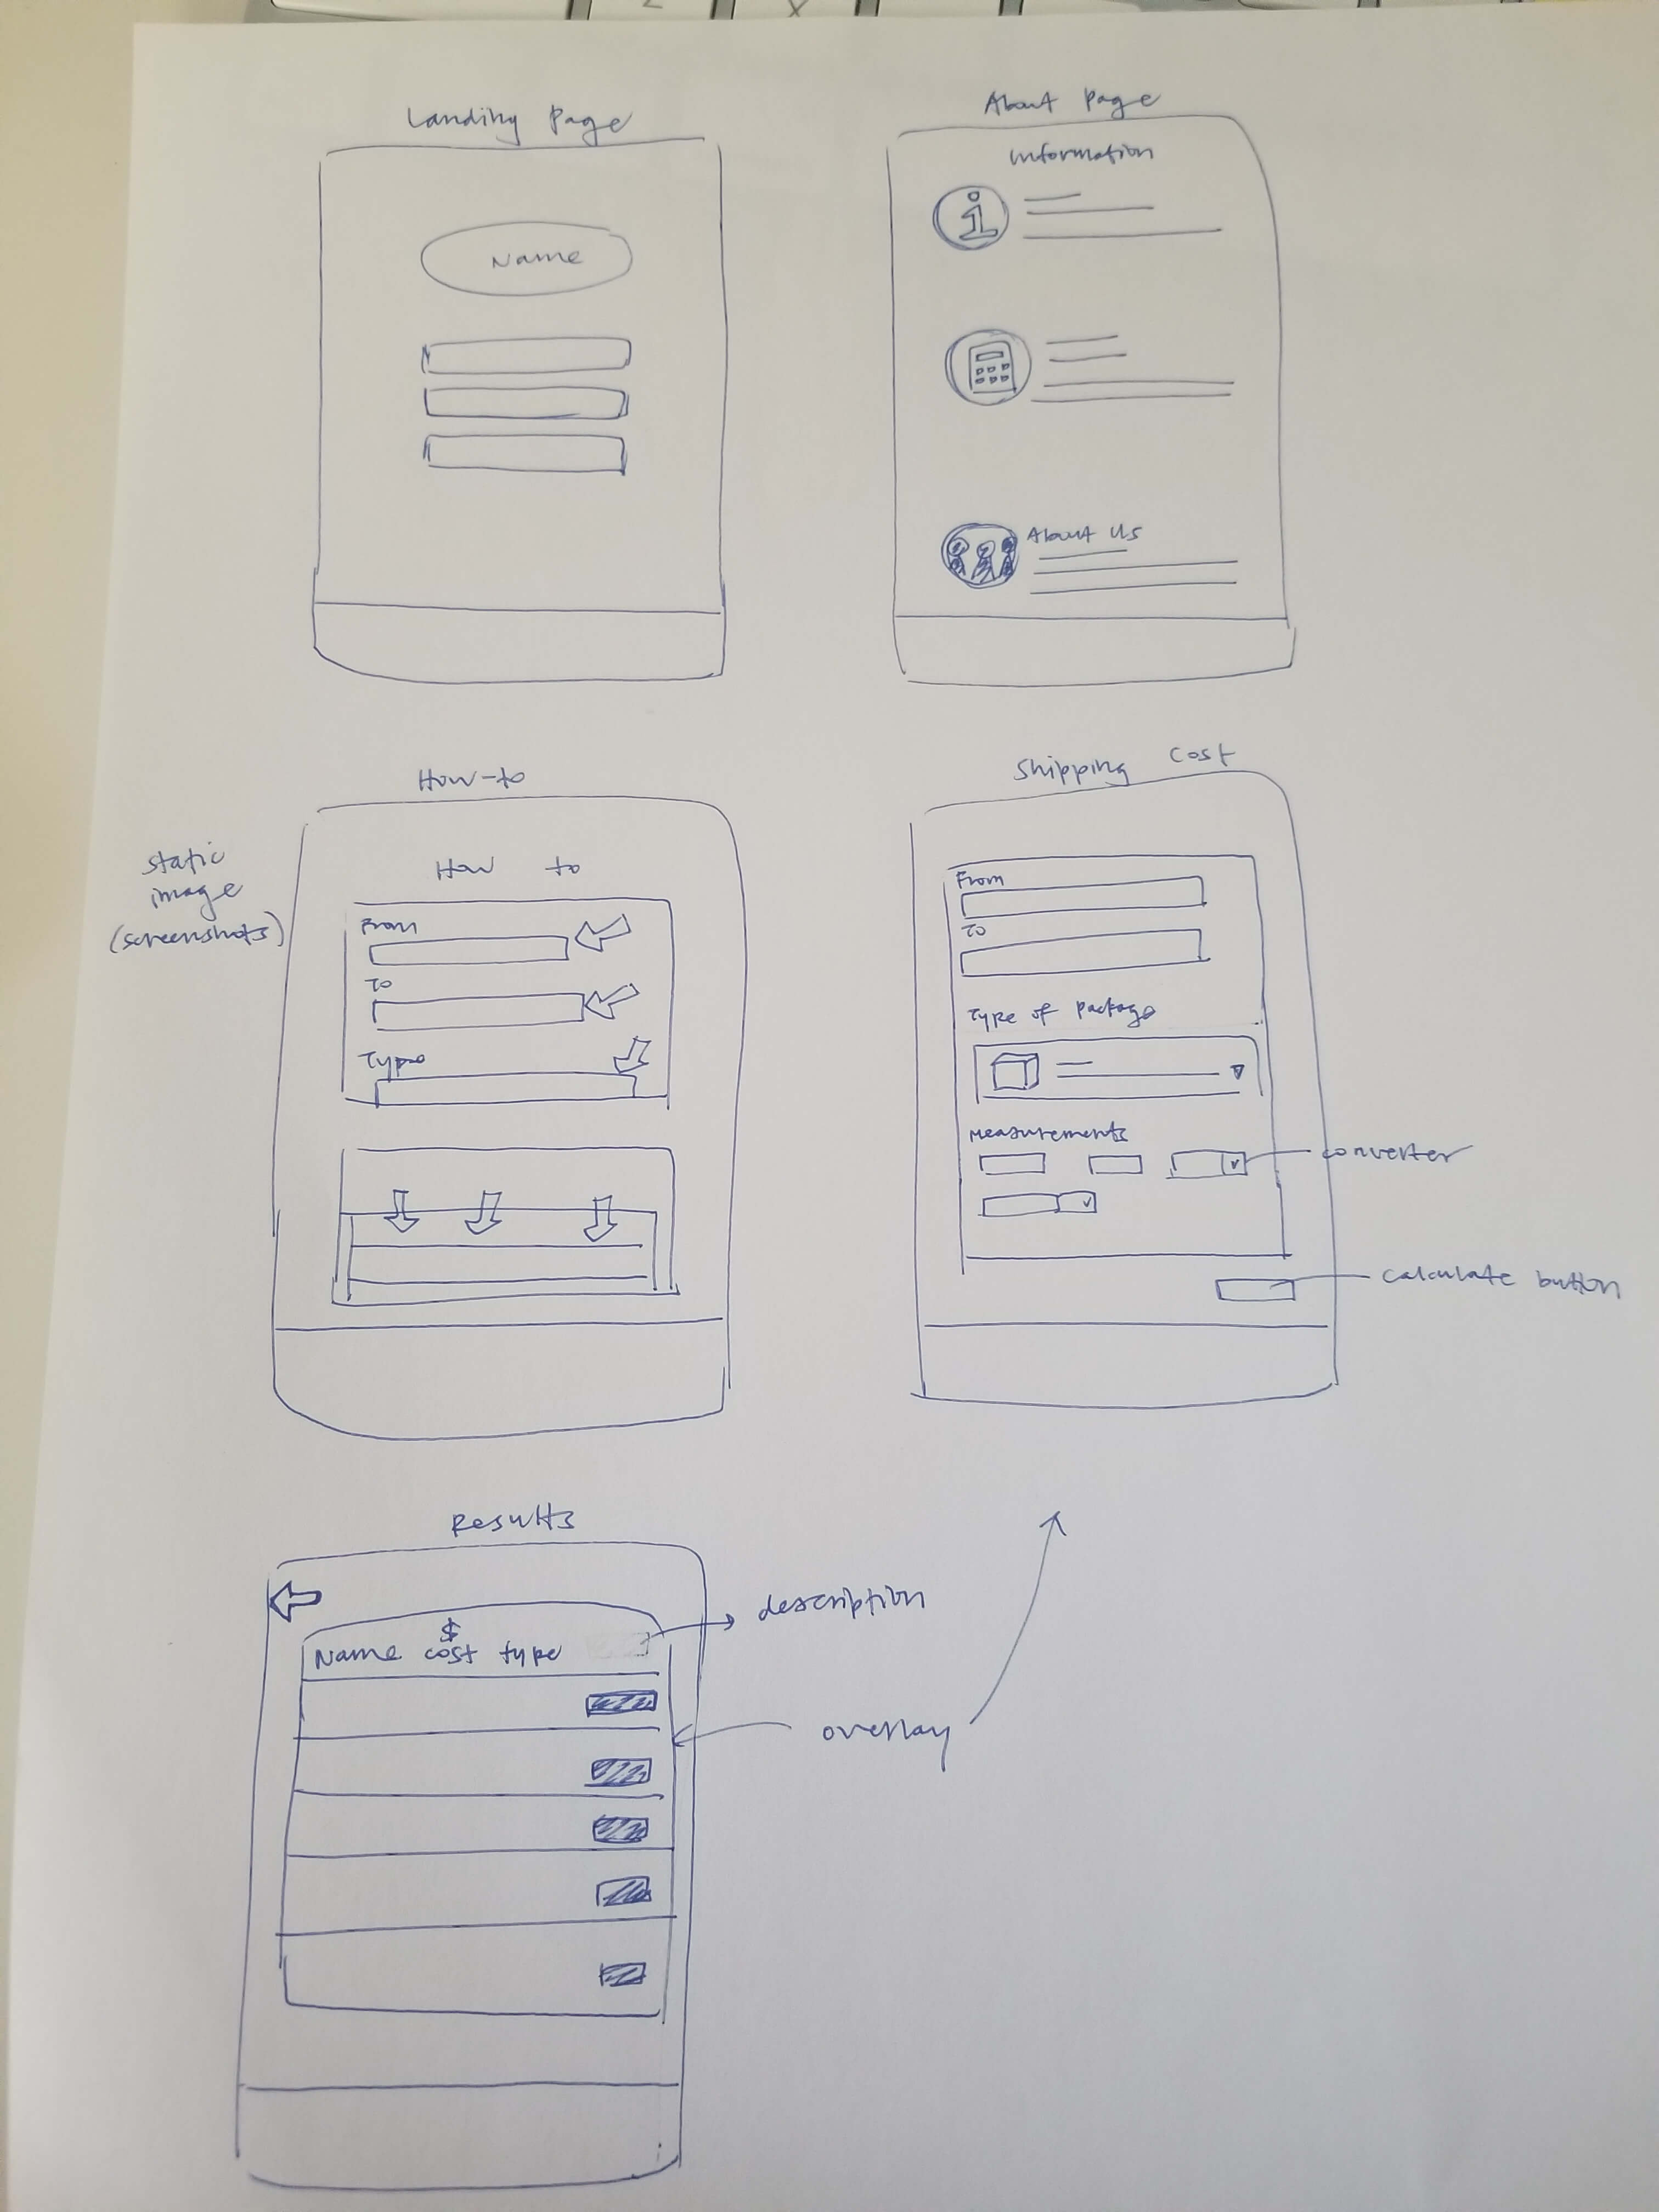 Landing Page
Name
About Page
Information
i
About Us
How-to
static
image
(screenshots)
How to
From
To
Type
Shipping Cost
From
To
Type of Package
Measurements
converter
calculate button
Results
$
Name cost type
description
overlay